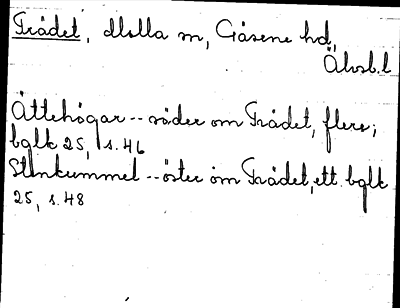 Trädet, Molla sn, Gäsene hd,
Älvsb.l
Ättehögar -- söder om Trädet, flera;
bglk 25, s. 46
Stenkummel -- öster om Trädet, ett. bglk
25, s. 48